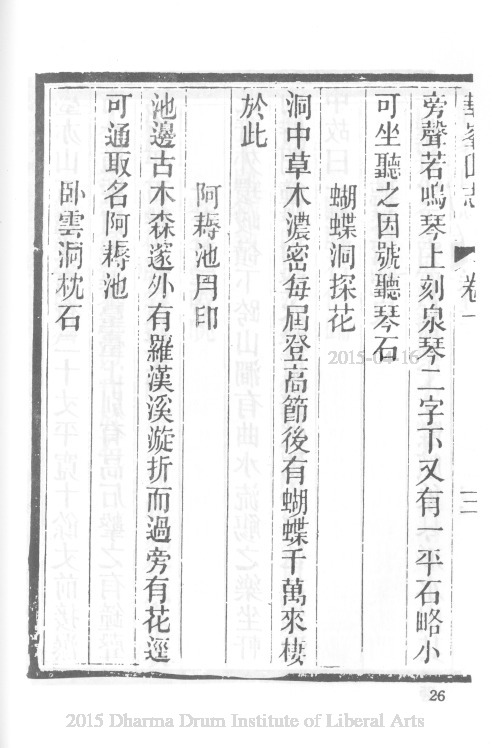 旁聲若鳴琴上刻泉琴二字下又有一平石略小
可坐聽之因號聽琴石
蝴蝶洞探花
洞中草木濃密每屆登高節後有蝴蝶千萬來棲
於此
阿耨池月印
池邊古木森邃外有羅漢溪漩折而過旁有花逕
可通取名阿耨池
臥雲洞枕石
2015-04-16
26
2015 Dharma Drum Institute of Liberal Arts